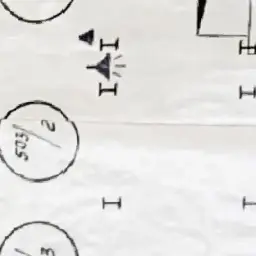 503/2
3